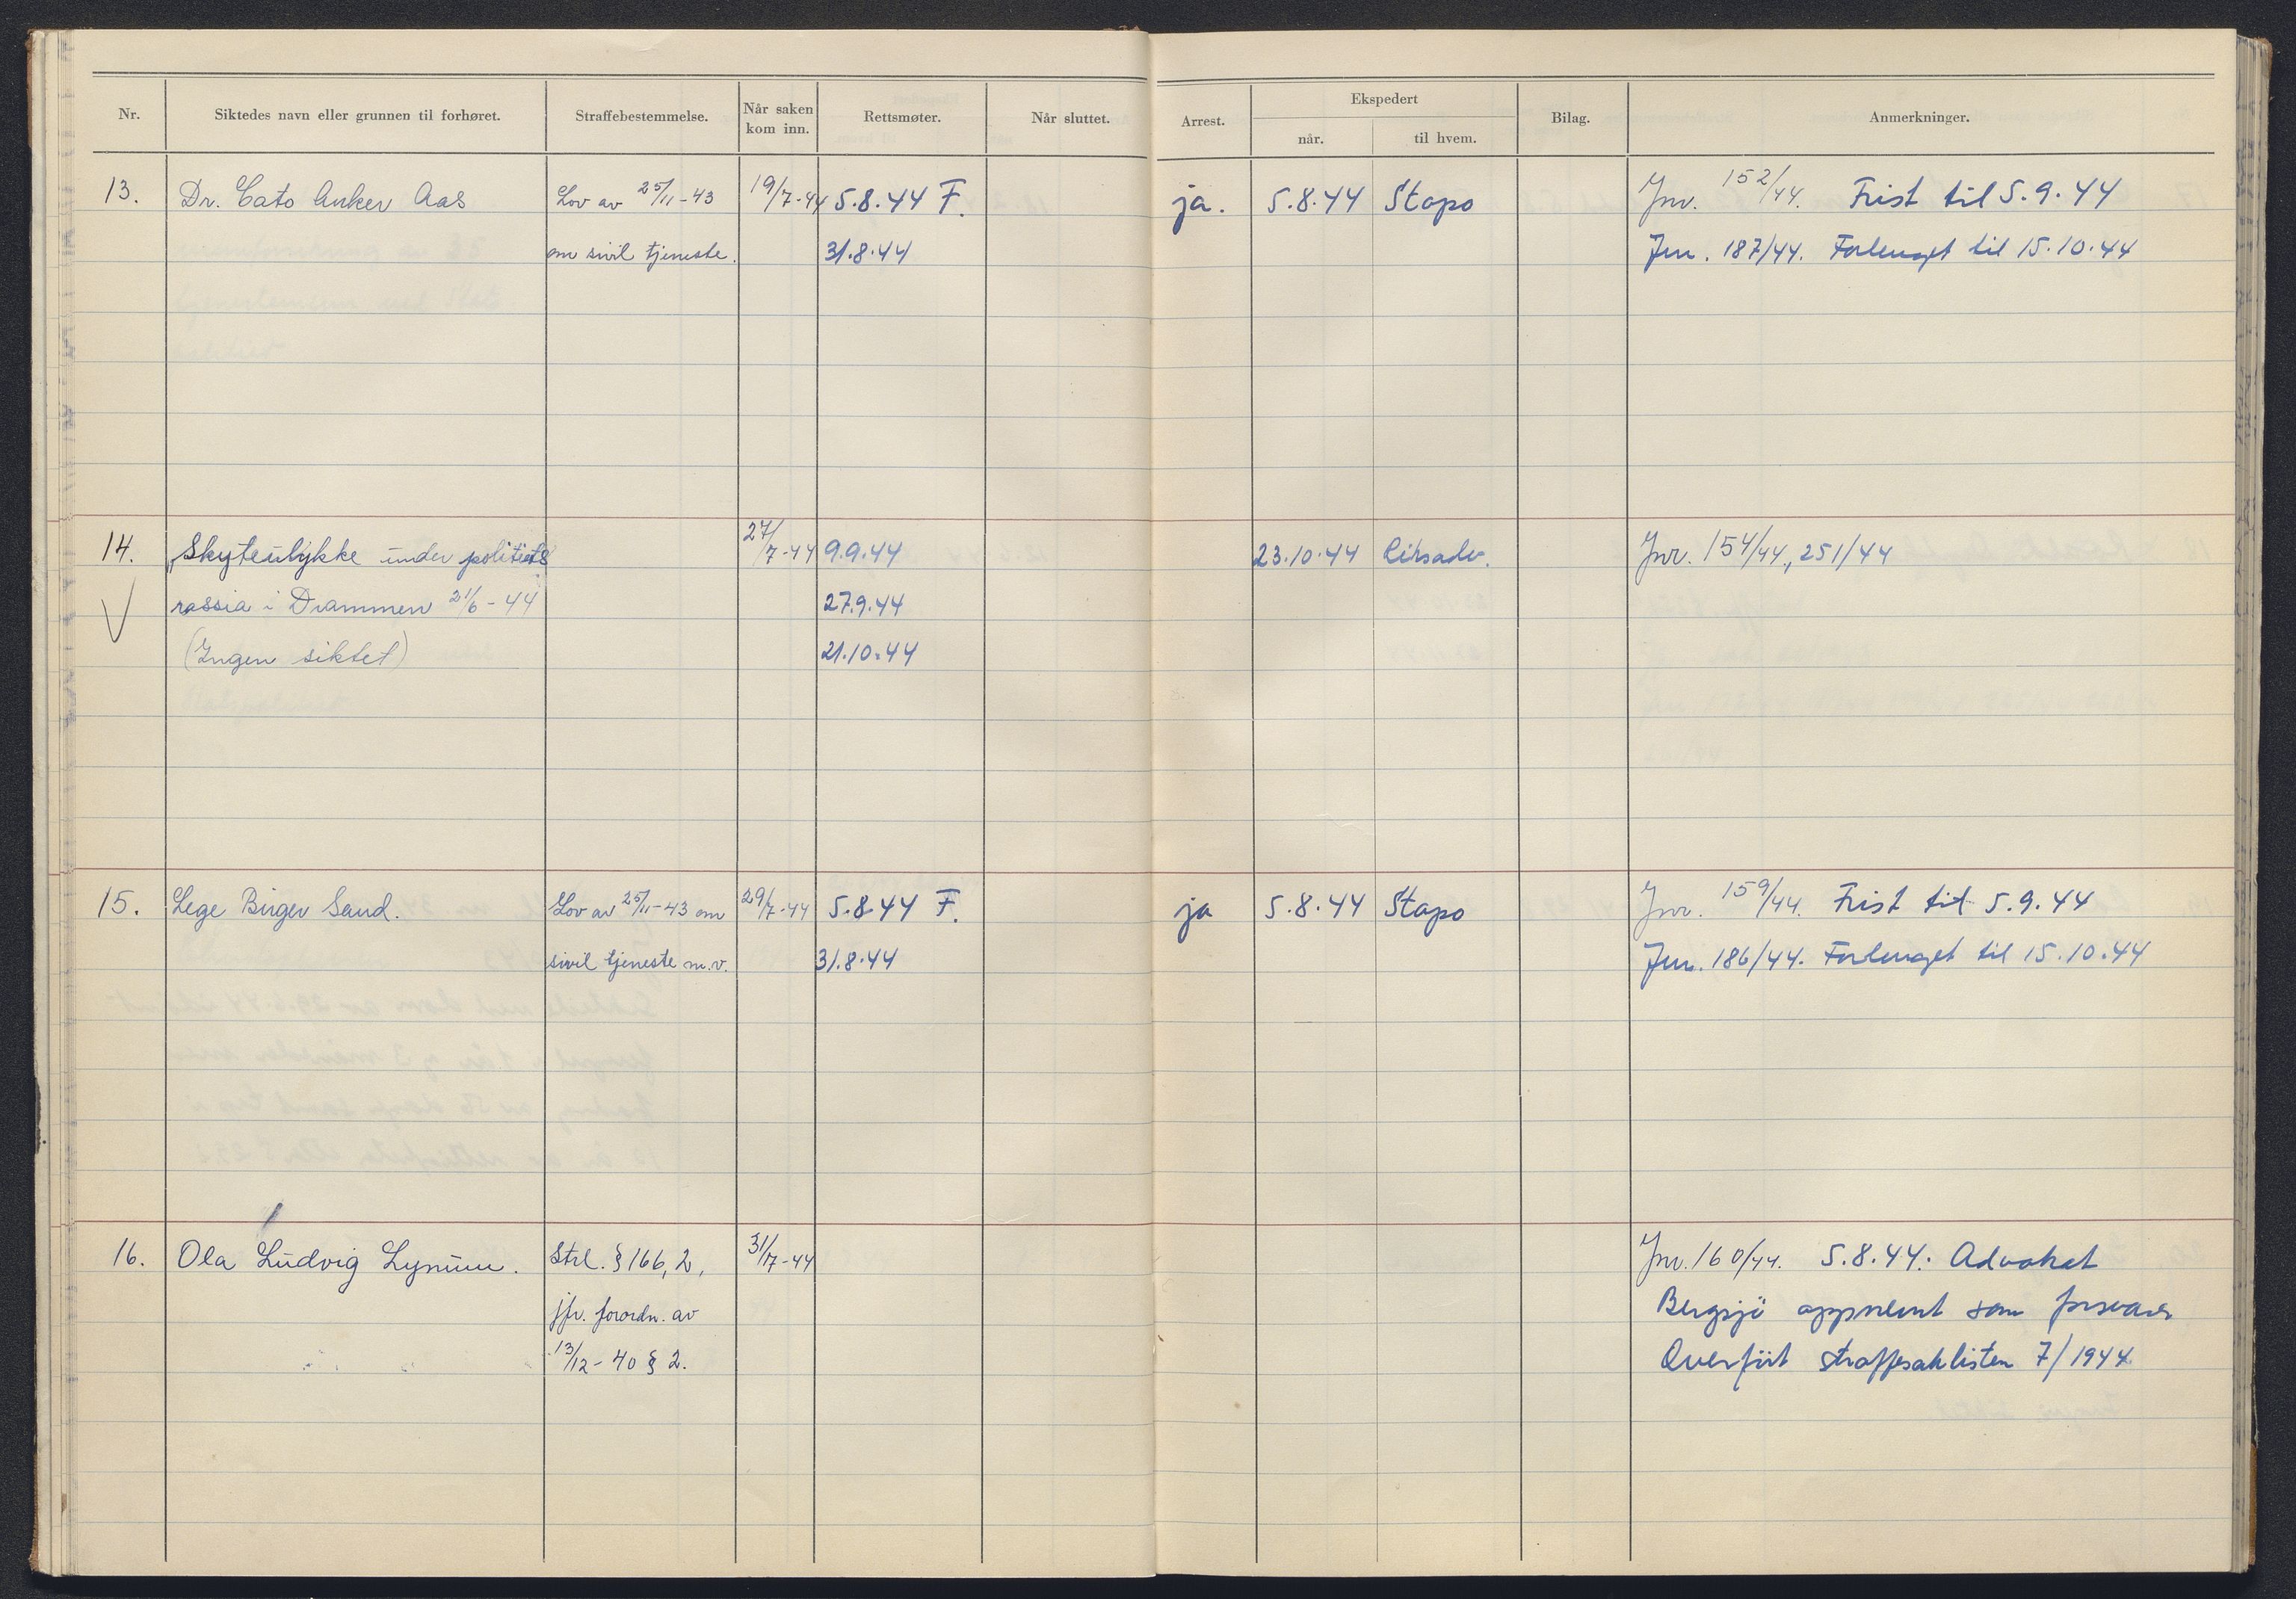 Nr. Siktedes navn eller grunnen til forhøret. Straffebestemmelse. Når saken kom inn. Rettsmøter. Når sluttet. Arrest. Ekspedert når. til hvem. Bilag. Anmerkninger.
13. Dr. Cato Anker Aas Lov av 25/11-43 19/7-44 5.8.44 F. ja. 5.8.44 Stapo Jnr. 152/44. Frist til 5.9.44
om sivil tjeneste. 31.8.44 Jnr. 187/44. Forlenget til 15.10.44
14. "Skyteulykke under politiets 27/7-44 9.9.44 23.10.44 Jnr. 154/44, 251/44
rassia i Drammen 21/6-44 27.9.44
(Ingen siktet) 21.10.44
15. Lege Birger Sand. Lov av 25/11-43 om 29/7-44 5.8.44 F. ja 5.8.44 Stapo Jnr. 159/44. Frist til 5.9.44
sivil tjeneste m.v. 31.8.44 Jnr. 186/44. Forlenget til 15.10.44
16. Ola Ludvig Strl. § 166, 2, 31/7-44 Jnr. 160/44. 5.8.44: Advokat
jfr. forordn. av Bergsjö oppnevnt som forsvarer
13/12-40 § 2. Overfört straffesaklisten 7/1944